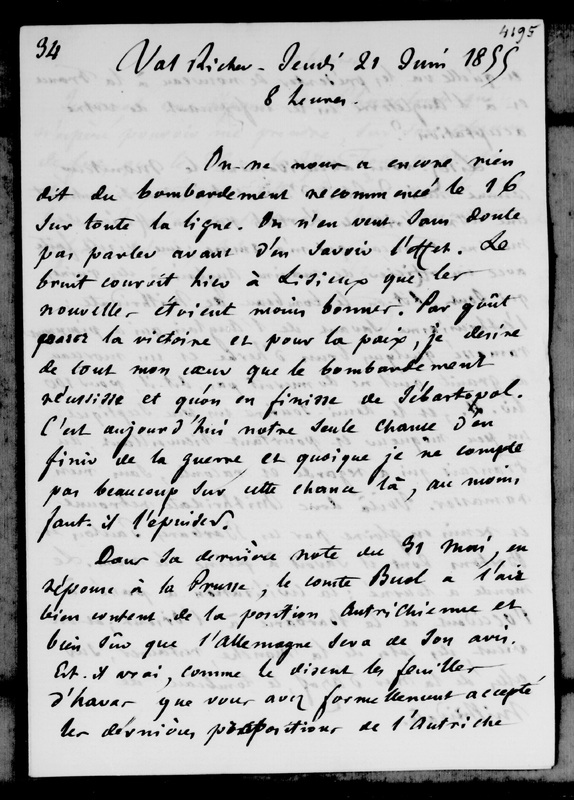 34
4195
Val Richer - Jeudi 21 Juin 1855
8 heures.
On ne nous a encore rien
dit du bombardement recommencé le 16
sur toute la ligne. On n'en veut sans doute
pas parler avant d'en savoir l'effet. Le
bruit couroit hier à Lisieux que les
nouvelles étoient moins bonnes. Par goût
pour la victoire et pour la paix, je desire
de tout mon cœur que le bombardement
réussisse et qu'on en finisse de Sébastopol.
C'est aujourd'hui notre seule chance d'en
finir de la guerre et quoique je ne compte
pas beaucoup sur cette chance là, au moins
faut-il l'épuiser.
Dans sa dernière note du 31 mai, en
réponse à la Prusse, le comte Buol a l'air
bien content de la position Autrichienne et
bien sûr que l'Allemagne sera de son avis.
Est-il vrai, comme le disent les feuilles
d'havas que vous avez formellement accepté
les dernières propositions de l'Autriche